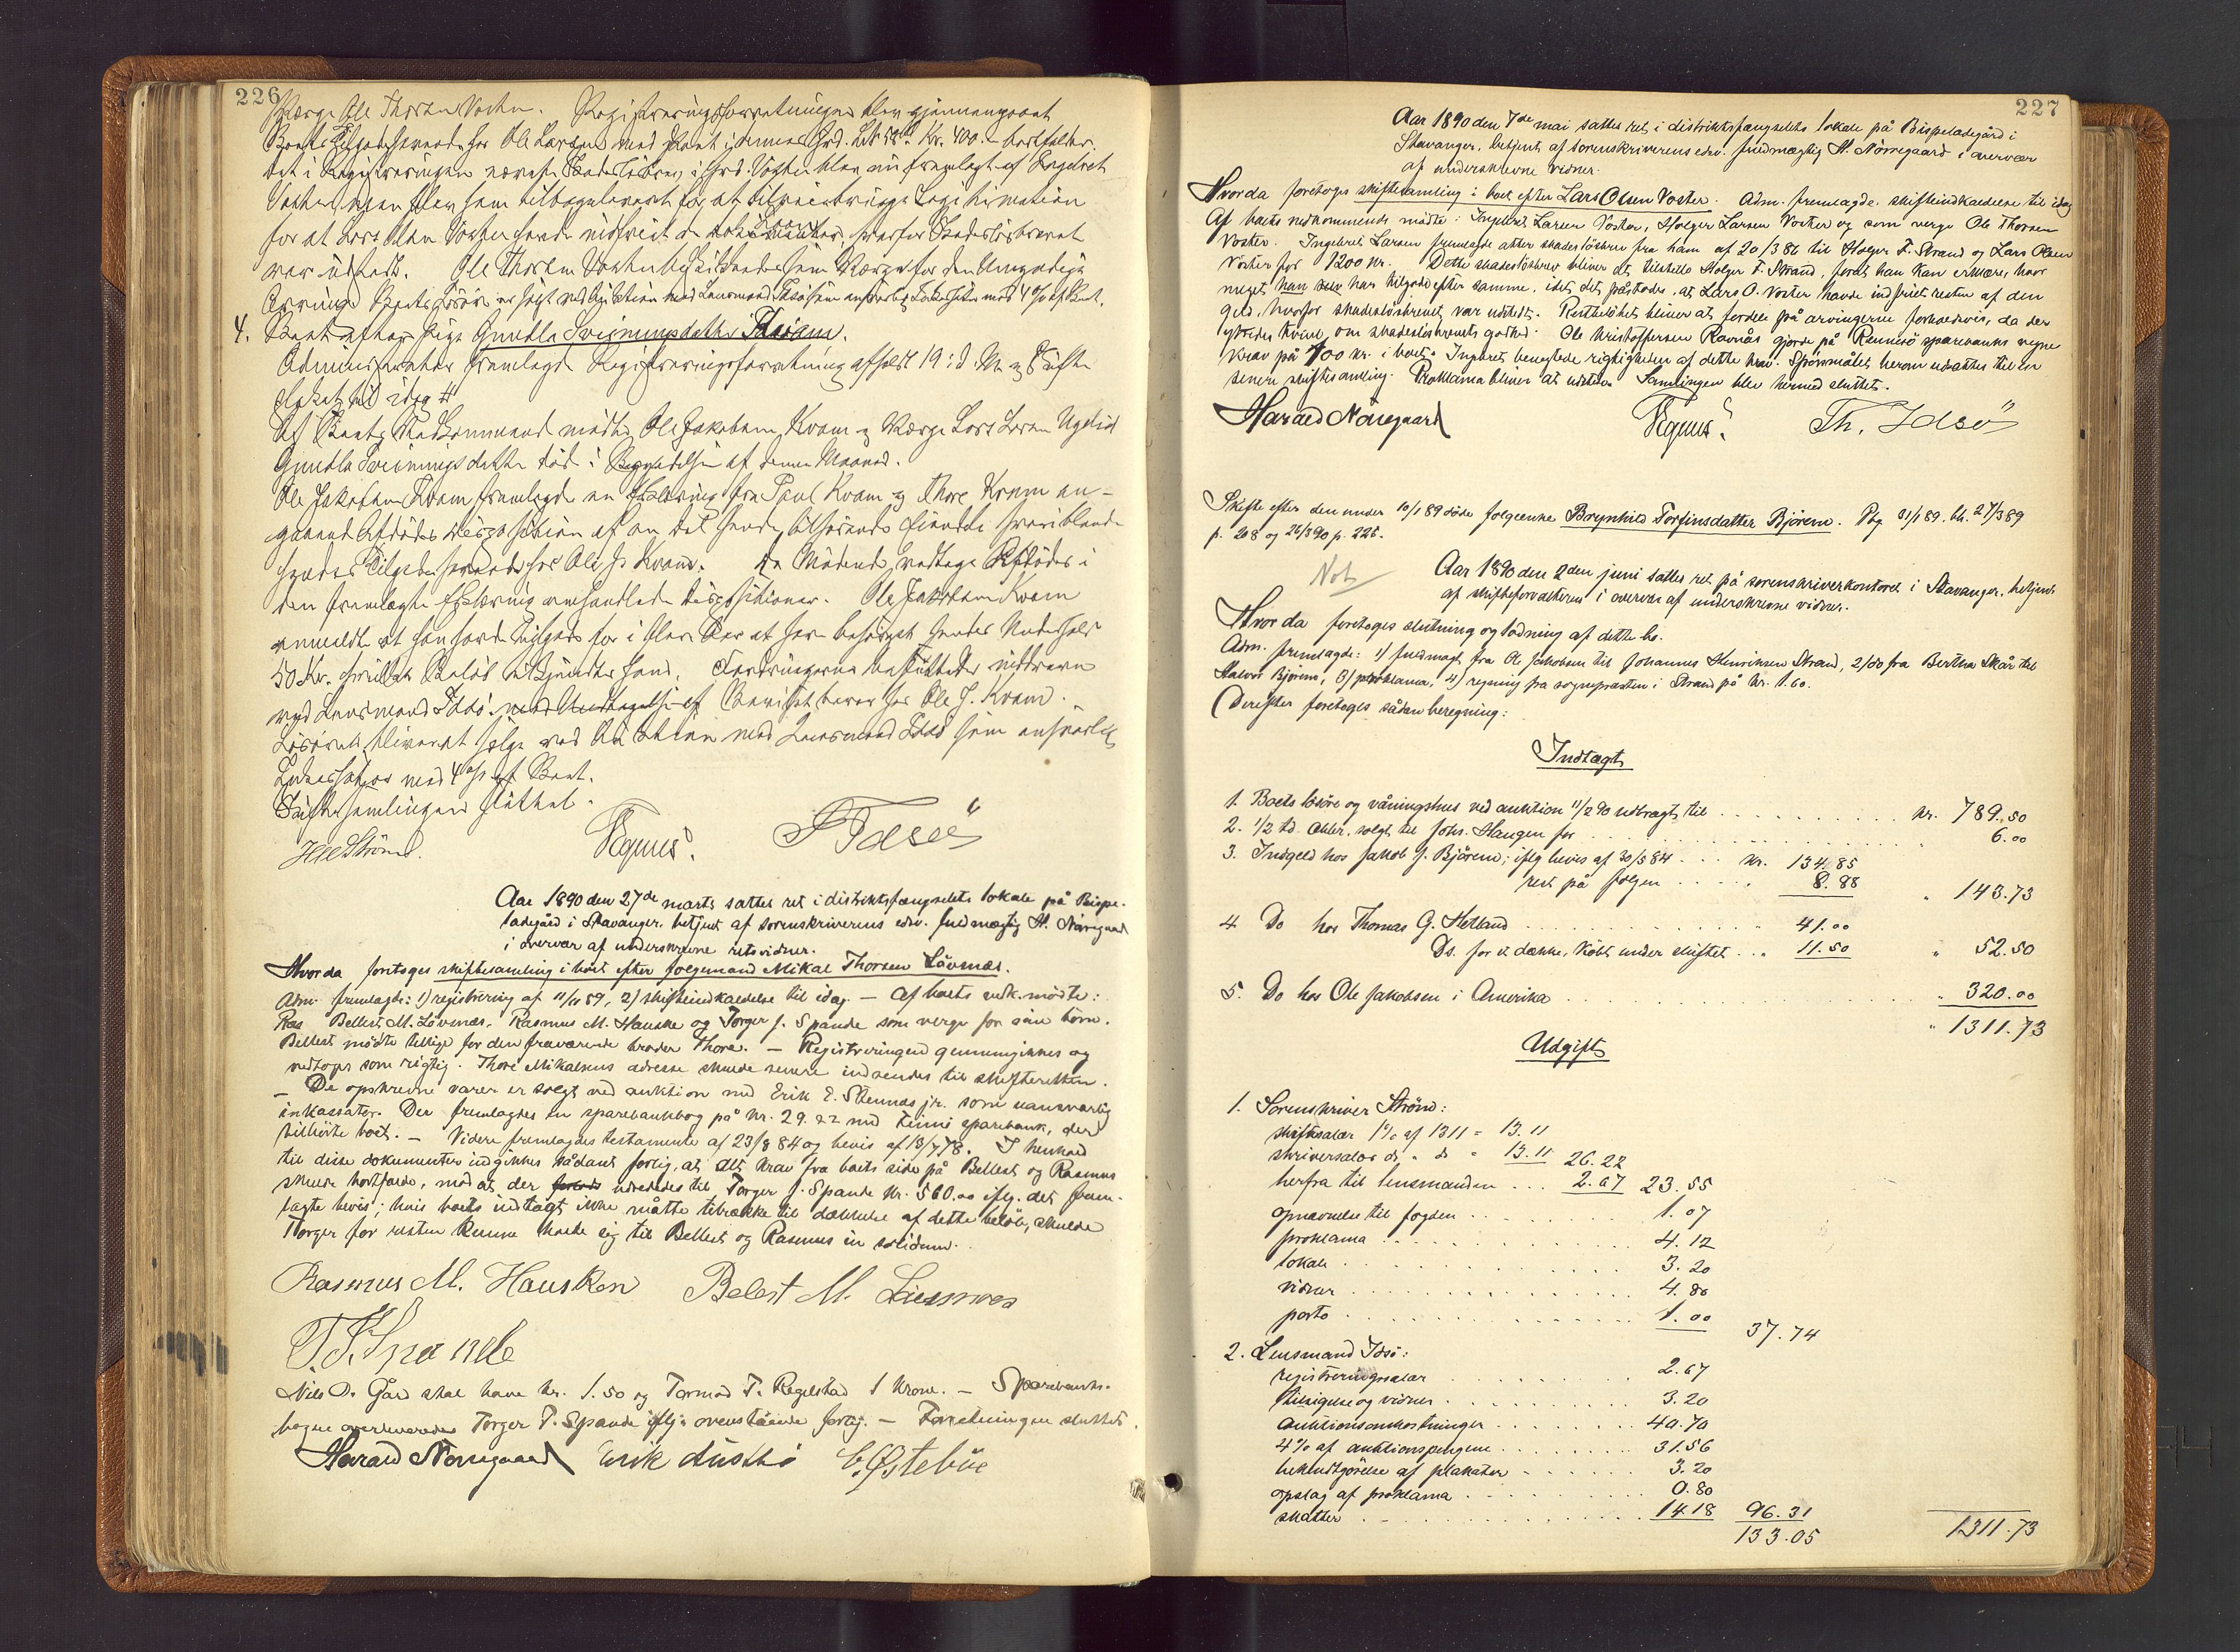 226
Værge Ole Thorsen Voster. Registreringsforretningen blev gjennemgaaet
Boets Tilgodehavende hos Ole Larsen med Pant i denne Grd. Kr. 400.- bortfalder.
Det i Registreringen nævnte Skadesløsbrev i Grd. Voster blev nu fremlagt af Ingebret
Voster, men blev ham tilbageleveret for at tilveiebringe Legitimation
for at Lars Olsen Voster havde indfriet de hvorfor Skadesløsbrevet
var udstedt. Ole Thorsen Voster beskikkedes som Værge for den Umyndige
Arving. Boets Løsøre er solgt ved Auktion med Lensmand Idsø som ansvarlig Inkassator mod 4 % af Boet.
4. Boet efter Pige Gundla Sveinungsdatter
Administrator fremlagde Registreringsforretning afholdt 19 d. M. og Skifte-
idag
Af Boets Vedkommende mødte Ole Jakobsen Kvam og Værge Lars Larsen Ugelid
Gundla Sveinungsdatter død i Begyndelsen af denne Maaned.
Ole Jakobsen Kvam fremlagde en Erklæring fra Paul Kvam og Thore Kvam an-
gaaende Afdødes Disposition af en Del hende tilhørende Eiendele hvoriblandt
hendes Tilgodehavende hos Ole J. Kvam. De Mødende vedtage Afdødes i
den fremlagte Erklæring omhandlede Dispositioner. Ole Jakobsen Kvam
anmeldte at han havde tilgode for i flere Aar at have besørget hendes Underhold
50 Kr. hvilket Beløb
ved Lensmand Idsø med Undtagelse af hos Ole J. Kvam.
Løsøret bliver at sælge ved Auktion med Lensmand Idsø som ansvarlig
Inkassator mod 4 % af Boet.
Skiftesamlingen sluttet.
Strøm. Vegner. T Idsøe
Aar 1890 den 27de marts sattes ret i distriktsfængselets lokale på Bispe-
ladegård i Stavanger, betjent af sorenskriverens edsv. fuldmægtig H. Nörregaard
i overvær af underskrevne retsvidner.
Hvorda foretoges skiftesamling i boet efter folgemand Mikal Thorsen Lövnæs.
Adm. fremlagde: 1) registrering af 11/11 89, 2) skifteindkaldelse til idag. — Af boets vedk. mödte:
Ras Bellest M. Lövnæs, Rasmus M. Hauske og Torger J. Spande som verge for sine börn.
Bellest mödte tillige for den fraværende broder Thore. — Registreringen gennemgikkes og
vedtoges som rigtig. Thore Mikalsens adresse skulde senere indsendes til skifteretten.
— De opskrevne varer er solgt ved auktion med Erik E. Steinnæs jr. som uansvarlig
inkassator. Der fremlagdes en sparebankbog på kr. 29.22 med Finnö sparebank, der
tilhörte boet. — Videre fremlagdes testamente af 23/8 84 og bevis af 13/7 78. I henhold
til disse dokumenter indgikkes sådant forlig, at alt krav fra boets side på Bellest og Rasmus
skulde bortfalde, mod at der udreddes til Torger J. Spande kr. 560.00 iflg. det frem-
lagte bevis; hvis boets indtægt ikke måtte tilrække til dækkelse af dette beløb, skulde
Torger for resten kunne holde sig til Bellest og Rasmus in solidum.
Rasmus M. Hausken Belest M. Lövnæs
T. J. Spande
Nils O. Gård skal have kr. 1.50 og Tormod T. Regelstad 1 krone. — Sparebank-
bogen overleveredes Torger T. Spande iflg. ovenstående forlig. — Forretningen sluttet.
Harald Nörregaard Erik Austbö C. Østeböe
227
Aar 1890 den 7de mai sattes ret i distriktsfængselets lokale på Bispeladegård i
Stavanger, betjent af sorenskriverens edsv. fuldmægtig H. Nörregaard i overvær
af underskrevne vidner.
Hvorda foretoges skiftesamling i boet efter Lars Olsen Voster. Adm. fremlagde skifteindkaldelse til idag
Af boets vedkommende mödte: Ingebret Larsen Voster, Holger Larsen Voster og som verge Ole Thorsen
Voster. Ingebret Larsen fremlagde atter skadeslösbrev fra ham af 20/3 86 til Holger T. Strand og Lars Olsen
Voster for 1200 kr. Dette skadeslösbrev bliver at tilstille Holger T. Strand, fordi han kan erklære, hvor
meget han har tilgode efter samme, idet det påstodes, at Lars O. Voster havde indfriet resten af den
geld, hvorfor skadeslösbrevet var udstedt. Restbelöbet bliver at fordele på arvingerne forholdsvis, da der
ytredes tvivl om skadeslösbrevets godhed. Ole Kristoffersen Ravnås gjorde på Rennesö sparebanks vegne
krav på 400 kr. i boet. Ingebret benegtede rigtigheden af dette krav. Spörsmålet herom udsattes til en
senere skiftesamling. Proklama bliver at udstede. Samlingen blev hermed sluttet.
Harald Nörregaard Vegner. Th. Idsö
Skifte efter den under 10/1 89 döde folgeenke Brynhild Torfinsdatter Björem. Pbg. 31/1 89. bl. 27/3 89
p. 208 og 26/3 90 p. 225.
Not
Aar 1890 den 2den juni sattes ret på sorenskriverkontoret i Stavanger, betjent
af skifteforvalteren i overvær af underskrevne vidner.
Hvorda foretoges slutning og lodning af dette bo.
Adm. fremlagde: 1) fuldmagt fra Ole Jakobsen til Johannes Henriksen Strand, 2) do fra Bertha Skår til
Halvor Björem, 3) proklama, 4) regning fra sognepræsten i Strand på kr. 1.60.
Derefter foretoges sådan beregning:
Indtægt
1. Boets lösöre og våningshus ved auktion 11/2 90 udbragt til . . . kr. 789.50
2. 1/2 td. solgt til Johs. Haugen for . . . " 6.00
3. Indgeld hos Jakob J. Björem; iflg. bevis af 30/5 84 . . . kr. 134.85
rest på folgen . . . " 8.88 " 143.73
4 Do hos Thomas G. Hetland . . . " 41.00
Ds. for et dække, köbt under skiftet . . " 11.50 " 52.50
5. Do hos Ole Jakobsen i Amerika . . . " 320.00
" 1311.73
Udgift
1. Sorenskriver Ström:
skiftesalær 1% af 1311 = 13.11
skriversalær do " do " 13.11 26.22
herfra til lensmanden . . . 2.67 23.55
opnævnelse til fogden . . . 1.07
proklama . . . 4.12
lokale . . . 3.20
vidner . . . 4.80
porto . . . 1.00 37.74
2. Lensmand Idsö:
registreringssalær . . . 2.67
tilsigelse og vidner . . . 3.20
auktionsomkostninger . . . 40.70
4% af auktionspengene . . . 31.56
bekendtgörelse af plakater . . . 3.20
opslag af proklama . . . 0.80
skatter . . . 14.18 96.31
133.05 1311.73